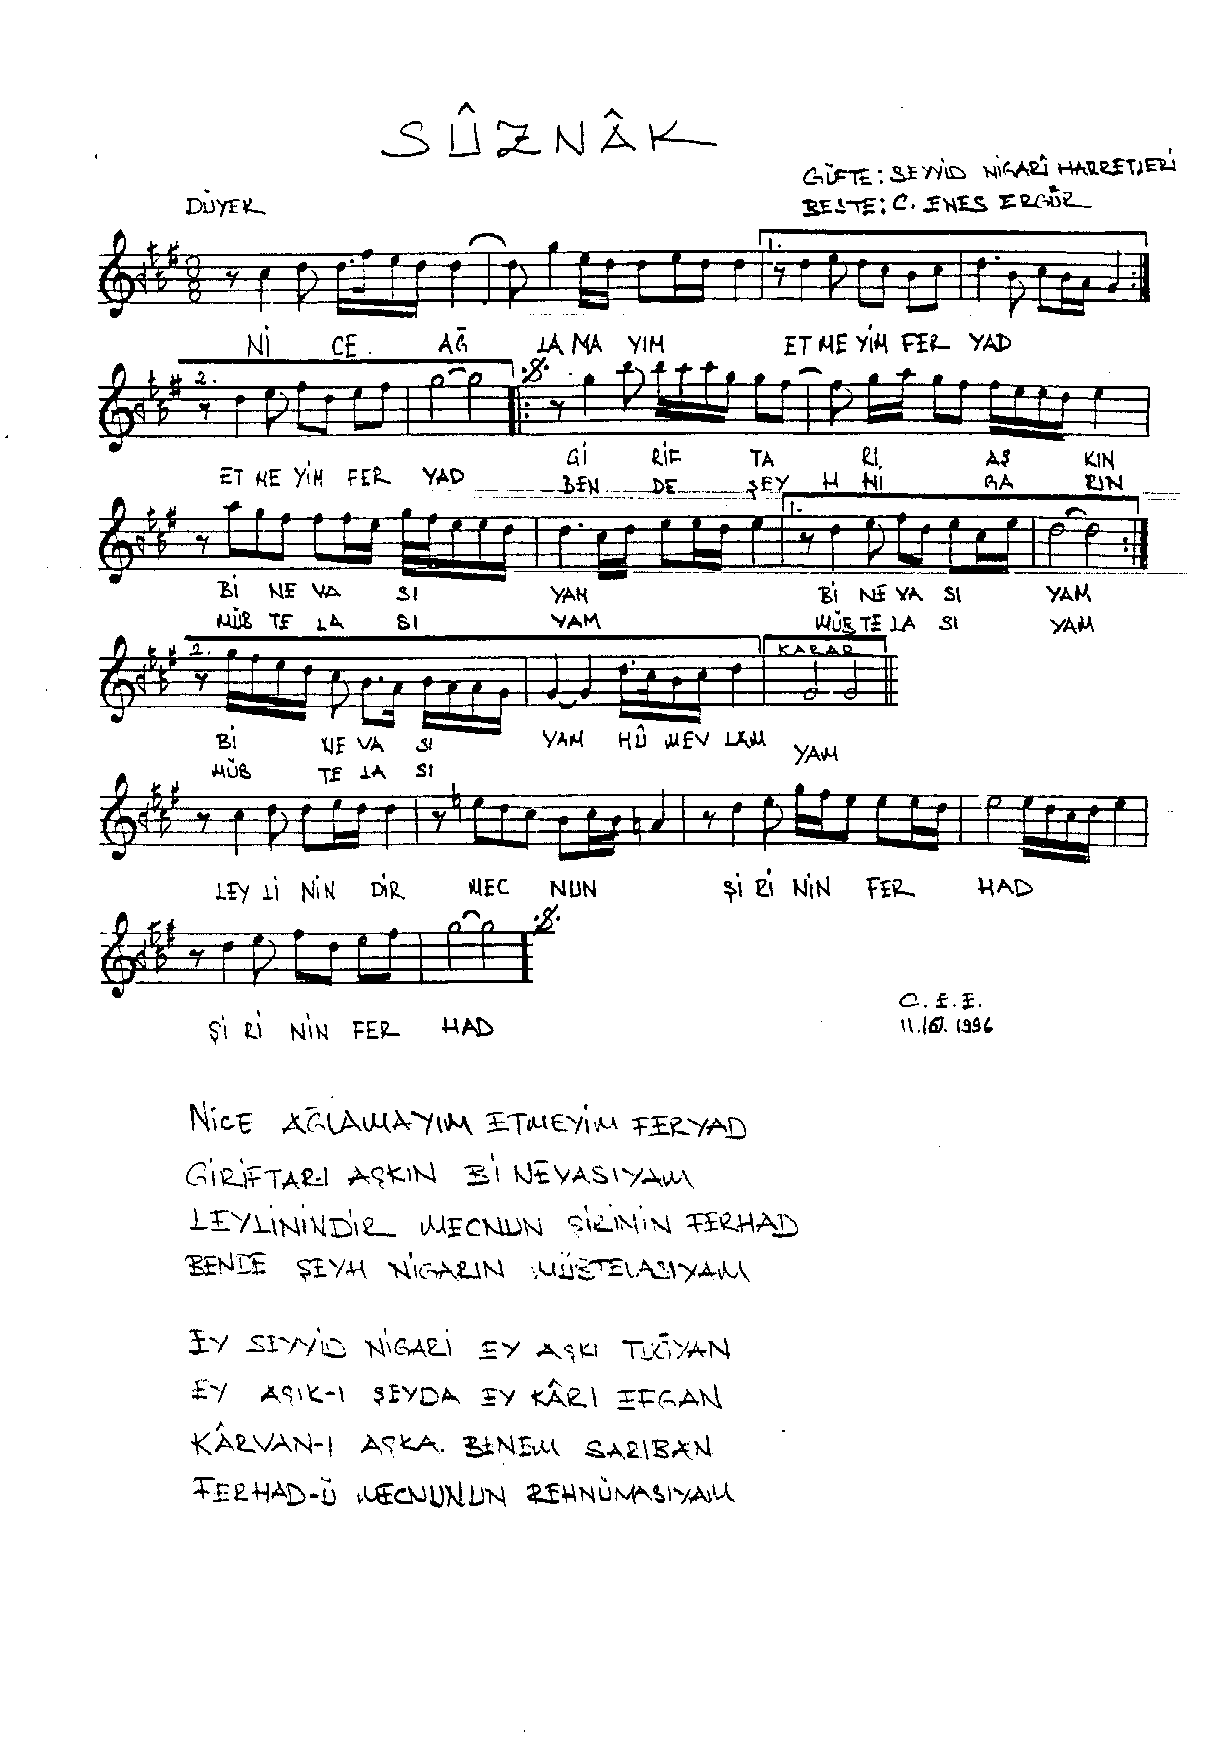 SÛZNÂK
GÜFTE: SEYYİD NİGARÎ HAZRETLERİ
DÜYEK
BESTE: C. ENES ERGÜR
1.
Nİ CE AĞ LA MA YIM ET ME YİM FER YAD
2.
Gİ RİF TA RI AŞ KIN
ET ME YİM FER YAD BEN DE ŞEY H Nİ GA RIN
1.
Bİ NE VA SI YAM Bİ NE VA SI YAM
MÜB TE LA SI YAM MÜB TE LA SI YAM
2. KARAR
Bİ NE VA SI YAM HÛ MEV LAM YAM
MÜB TE LA SI
LEY Lİ NİN DİR MEC NUN Şİ Rİ NİN FER HAD
C. E. E.
Şİ Rİ NİN FER HAD
NİCE AĞLAMAYIM ETMEYİM FERYAD
GİRİFTAR-I AŞKIN Bİ NEVASIYAM
LEYLİNİNDİR MECNUN ŞİRİNİN FERHAD
BENDE ŞEYH NİGARIN MÜBTELASIYAM
EY SEYYİD NİGARİ EY AŞKI TUĞYAN
EY AŞIK-I ŞEYDA EY KÂRI EFGAN
KÂRVAN-I AŞKA BENEM SARIBAN
FERHAD-Ü MECNUNUN REHNÜMASIYAM